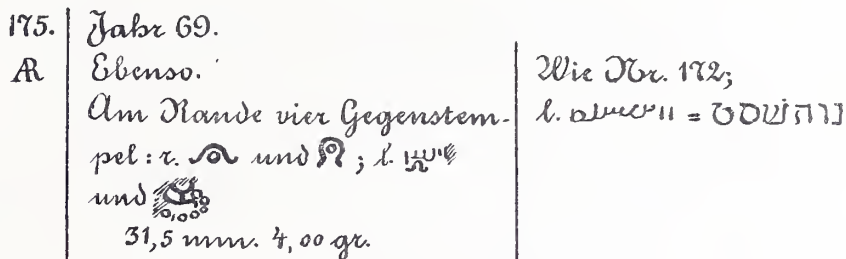 175. Jahr 69.
AR Ebenso.
Am Rande vier Gegenstem-
pel: r. und ; l.
und
31,5 mm. 4,00 gr.
Wie Nr. 172;
l. =